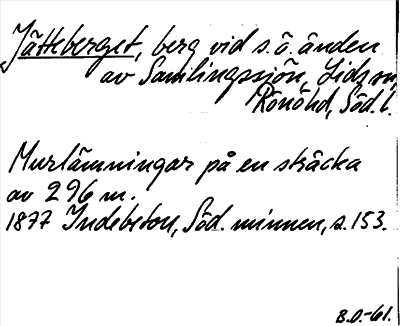 Jätteberget, berg vid s.ö. änden
av Samlingssjön, Lids sn,
Rönöhd, Söd.l.
Murlämningar på en sträcka
av 296 m.
1877 Indebetou, Söd. minnen, s. 153.
B.O.-61.